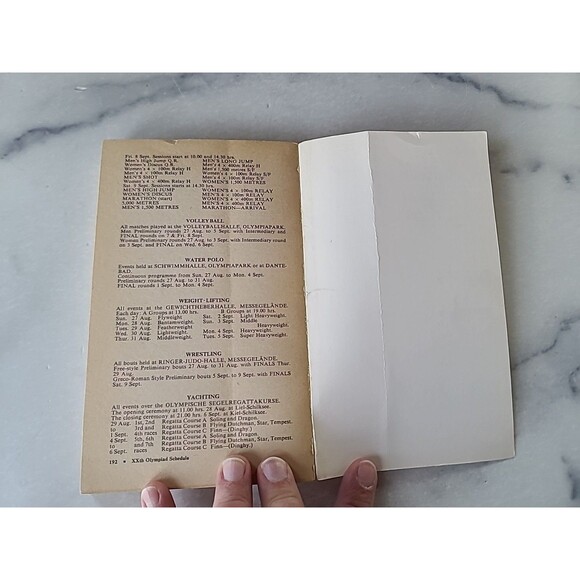 Fri. 8 Sept. Sessions start at 10.00 and 14.30 hrs.
Men's High Jump Q.R. MEN'S LONG JUMP
Women's Discus Q.R. Men's 4 × 400m Relay H
Women's 4 × 100m Relay H Men's 1,500 metres S/F
Men's 4 × 100m Relay H Women's 4 × 100m Relay S/F
MEN'S SHOT Men's 4 × 100m Relay S/F
Women's 4 × 400m Relay H WOMEN'S 1,500 METRES
Sat. 9 Sept. Sessions starts at 14.30 hrs.
MEN'S HIGH JUMP WOMEN'S 4 × 100m RELAY
WOMEN'S DISCUS MEN'S 4 × 100m RELAY
MARATHON (start) WOMEN'S 4 × 400m RELAY
5,000 METRES MEN'S 4 × 400m RELAY
MEN'S 1,500 METRES MARATHON—ARRIVAL
VOLLEYBALL
All matches played at the VOLLEYBALLHALLE, OLYMPIAPARK.
Men Preliminary rounds 27 Aug. to 5 Sept. with Intermediary and
FINAL rounds on 7 & Fri. 8 Sept.
Women Preliminary rounds 27 Aug. to 3 Sept. with Intermediary round
on 5 Sept. and FINAL on Wed. 6 Sept.
WATER POLO
Events held at SCHWIMMHALLE, OLYMPIAPARK, or at DANTE-
BAD.
Continuous programme from Sun. 27 Aug. to Mon. 4 Sept.
Preliminary rounds 27 Aug. to 31 Aug.
FINAL rounds 1 Sept. to Mon. 4 Sept.
WEIGHT-LIFTING
All events at the GEWICHTHEBERHALLE, MESSEGELÄNDE.
Each day: A Groups at 13.00 hrs. B Groups at 19.00 hrs.
Sun. 27 Aug. Flyweight Sat. 2 Sept. Light Heavyweight.
Mon. 28 Aug. Bantamweight Sun. 3 Sept. Middle
Tues. 29 Aug. Featherweight Heavyweight.
Wed. 30 Aug. Lightweight. Mon. 4 Sept. Heavyweight.
Thur. 31 Aug. Middleweight. Tues. 5 Sept. Super Heavyweight.
WRESTLING
All bouts held at RINGER-JUDO-HALLE, MESSEGELÄNDE.
Free-style Preliminary bouts 27 Aug. to 31 Aug. with FINALS Thur.
29 Aug.
Greco-Roman Style Preliminary bouts 5 Sept. to 9 Sept. with FINALS
Sat. 9 Sept.
YACHTING
All events over the OLYMPISCHE SEGELREGATTAKURSE.
The opening ceremony at 11.00 hrs. 28 Aug. at Liel-Schilksee.
The closing ceremony at 21.00 hrs. 8 Sept. at Kiel-Schilksee.
29 Aug. 1st, 2nd Regatta Course A Soling and Dragon.
to 3rd and Regatta Course B Flying Dutchman, Star, Tempest.
1 Sept. 4th races Regatta Course C Finn—(Dinghy.)
4 Sept. 5th, 6th Regatta Course A Soling and Dragon.
to and 7th Regatta Course B Flying Dutchman, Star, Tempest.
6 Sept. races Regatta Course C Finn—(Dinghy.)
192 • XXth Olympiad Schedule